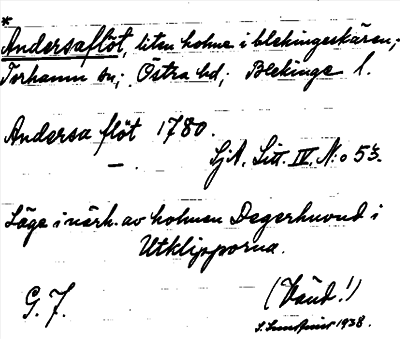 *
Andersaflöt, liten holme i blekingeskären;
Torhamn sn; Östra hd; Blekinge l.
Andersa flöt 1780.
— SjA. Litt. IV. N:o 53.
Läge i närh. av holmen Degerhuvud i
Utklipporna.
G. F. (Vänd!)
1938.